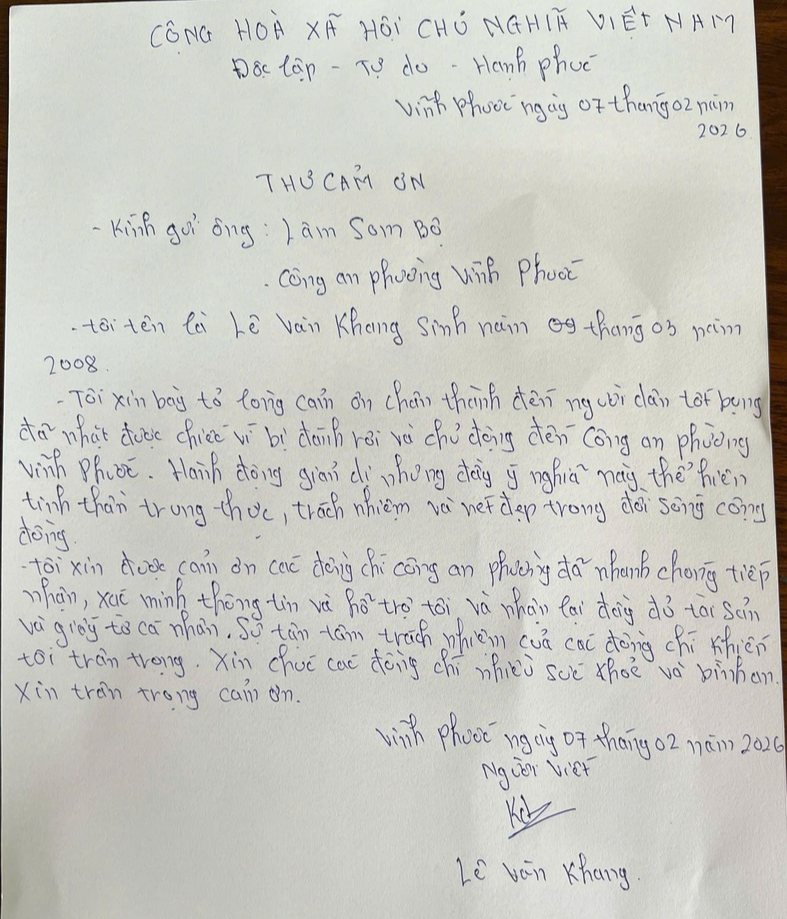 CỘNG HOÀ XÃ HỘI CHỦ NGHĨA VIỆT NAM
Độc lập - Tự do - Hạnh phúc
Vĩnh Phước ngày 07 tháng 02 năm
2026
THƯ CẢM ƠN
- Kính gửi ông: Lâm Som Bộ
. Công an phường Vĩnh Phước
. Tôi tên là Lê Văn Khang Sinh năm 09 tháng 03 năm
2008.
- Tôi xin bày tỏ lòng cảm ơn chân thành đến người dân tốt bụng
đã nhặt được chiếc ví bị đánh rơi và chủ động đến Công an phường
Vĩnh Phước. Hành động giản dị nhưng đầy ý nghĩa này thể hiện
tinh thần trung thực, trách nhiệm và nét đẹp trong đời sống cộng
đồng.
- Tôi xin được cảm ơn các đồng chí công an phường đã nhanh chóng tiếp
nhận, xác minh thông tin và hỗ trợ tôi và nhận lại đầy đủ tài sản
và giấy tờ cá nhân. Sự tận tâm trách nhiệm của các đồng chí khiến
tôi trân trọng. Xin chúc các đồng chí nhiều sức khoẻ và bình an.
Xin trân trọng cảm ơn.
Vĩnh Phước ngày 07 tháng 02 năm 2026
Người viết
Lê Văn Khang.